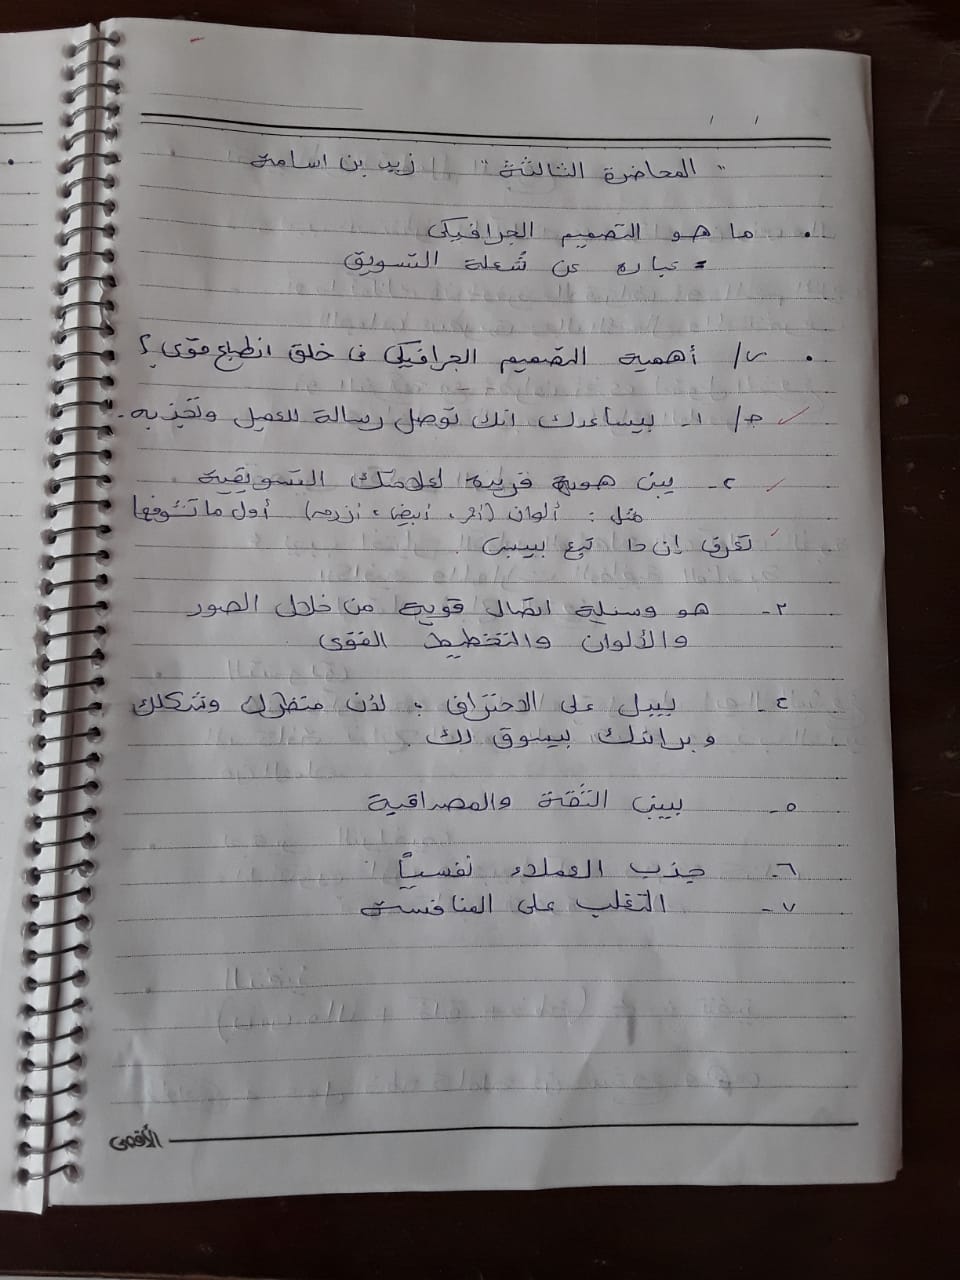 " المحاضرة الثالثة " زيد بن اسامة
• ما هو التصميم الجرافيكي
= عباره عن شُعلة التسويق
• س/ أهمية التصميم الجرافيكي في خلق انطباع قوى ؟
ج/ ١- بيساعدك انك توصل رسالة للعميل وتجذبه.
٢- يبنى هوية فريدة لعلامتك التسويقية
مثل : ألوان (أحمر، أبيض، أزرق) أول ما تشوفها
تعرف إن دا تبع بيبسى.
٣- هو وسيلة اتصال قوية من خلال الصور
والألوان والتخطيط القوى
٤- بيدل على الاحتراف ؛ لأن منظرك وشكلك
وبراندك بيسوق لك.
٥- بيبنى الثقة والمصداقية
٦- جذب العملاء نفسياً
٧- التغلب على المنافسة
الأقصى